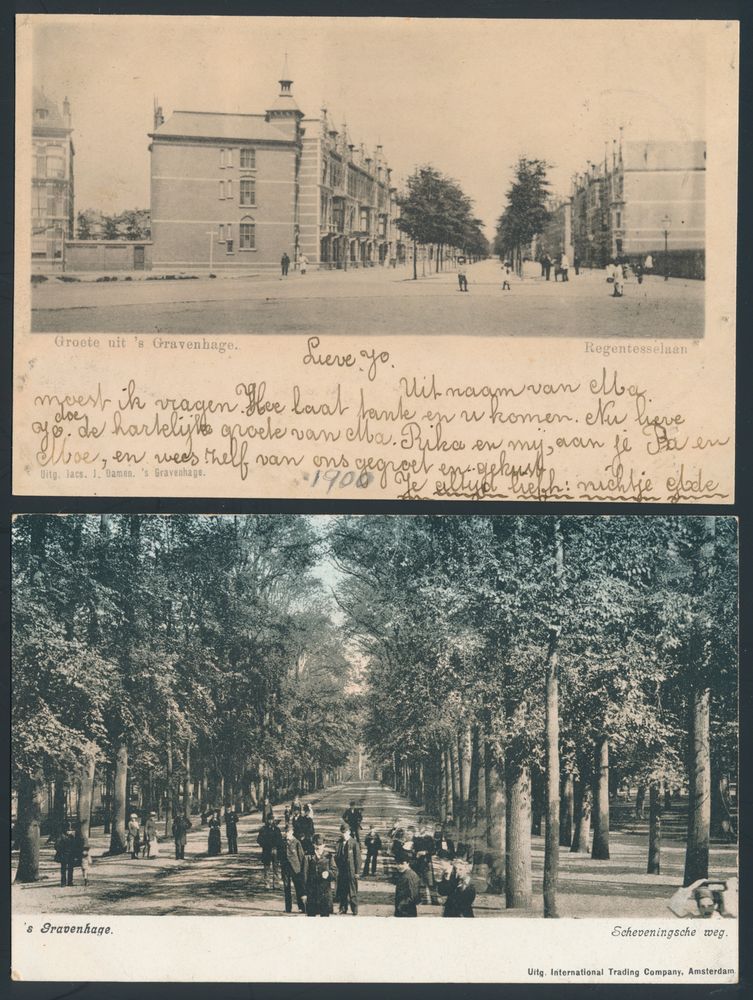 Groete uit 's Gravenhage.
Regentesselaan
Lieve Jo.
Uit naam van Ma
moest ik vragen. Hoe laat tante en u komen. Nu lieve
Jo. doe de hartelijke groete van Ma. Rika en mij, aan je Pa en
Moe, en wees zelf van ons gegroet en gekust
Uitg. Jacs. J. Damen. 's Gravenhage.
1900
Je altijd liefh: nichtje
's Gravenhage.
Scheveningsche weg.
Uitg. International Trading Company, Amsterdam